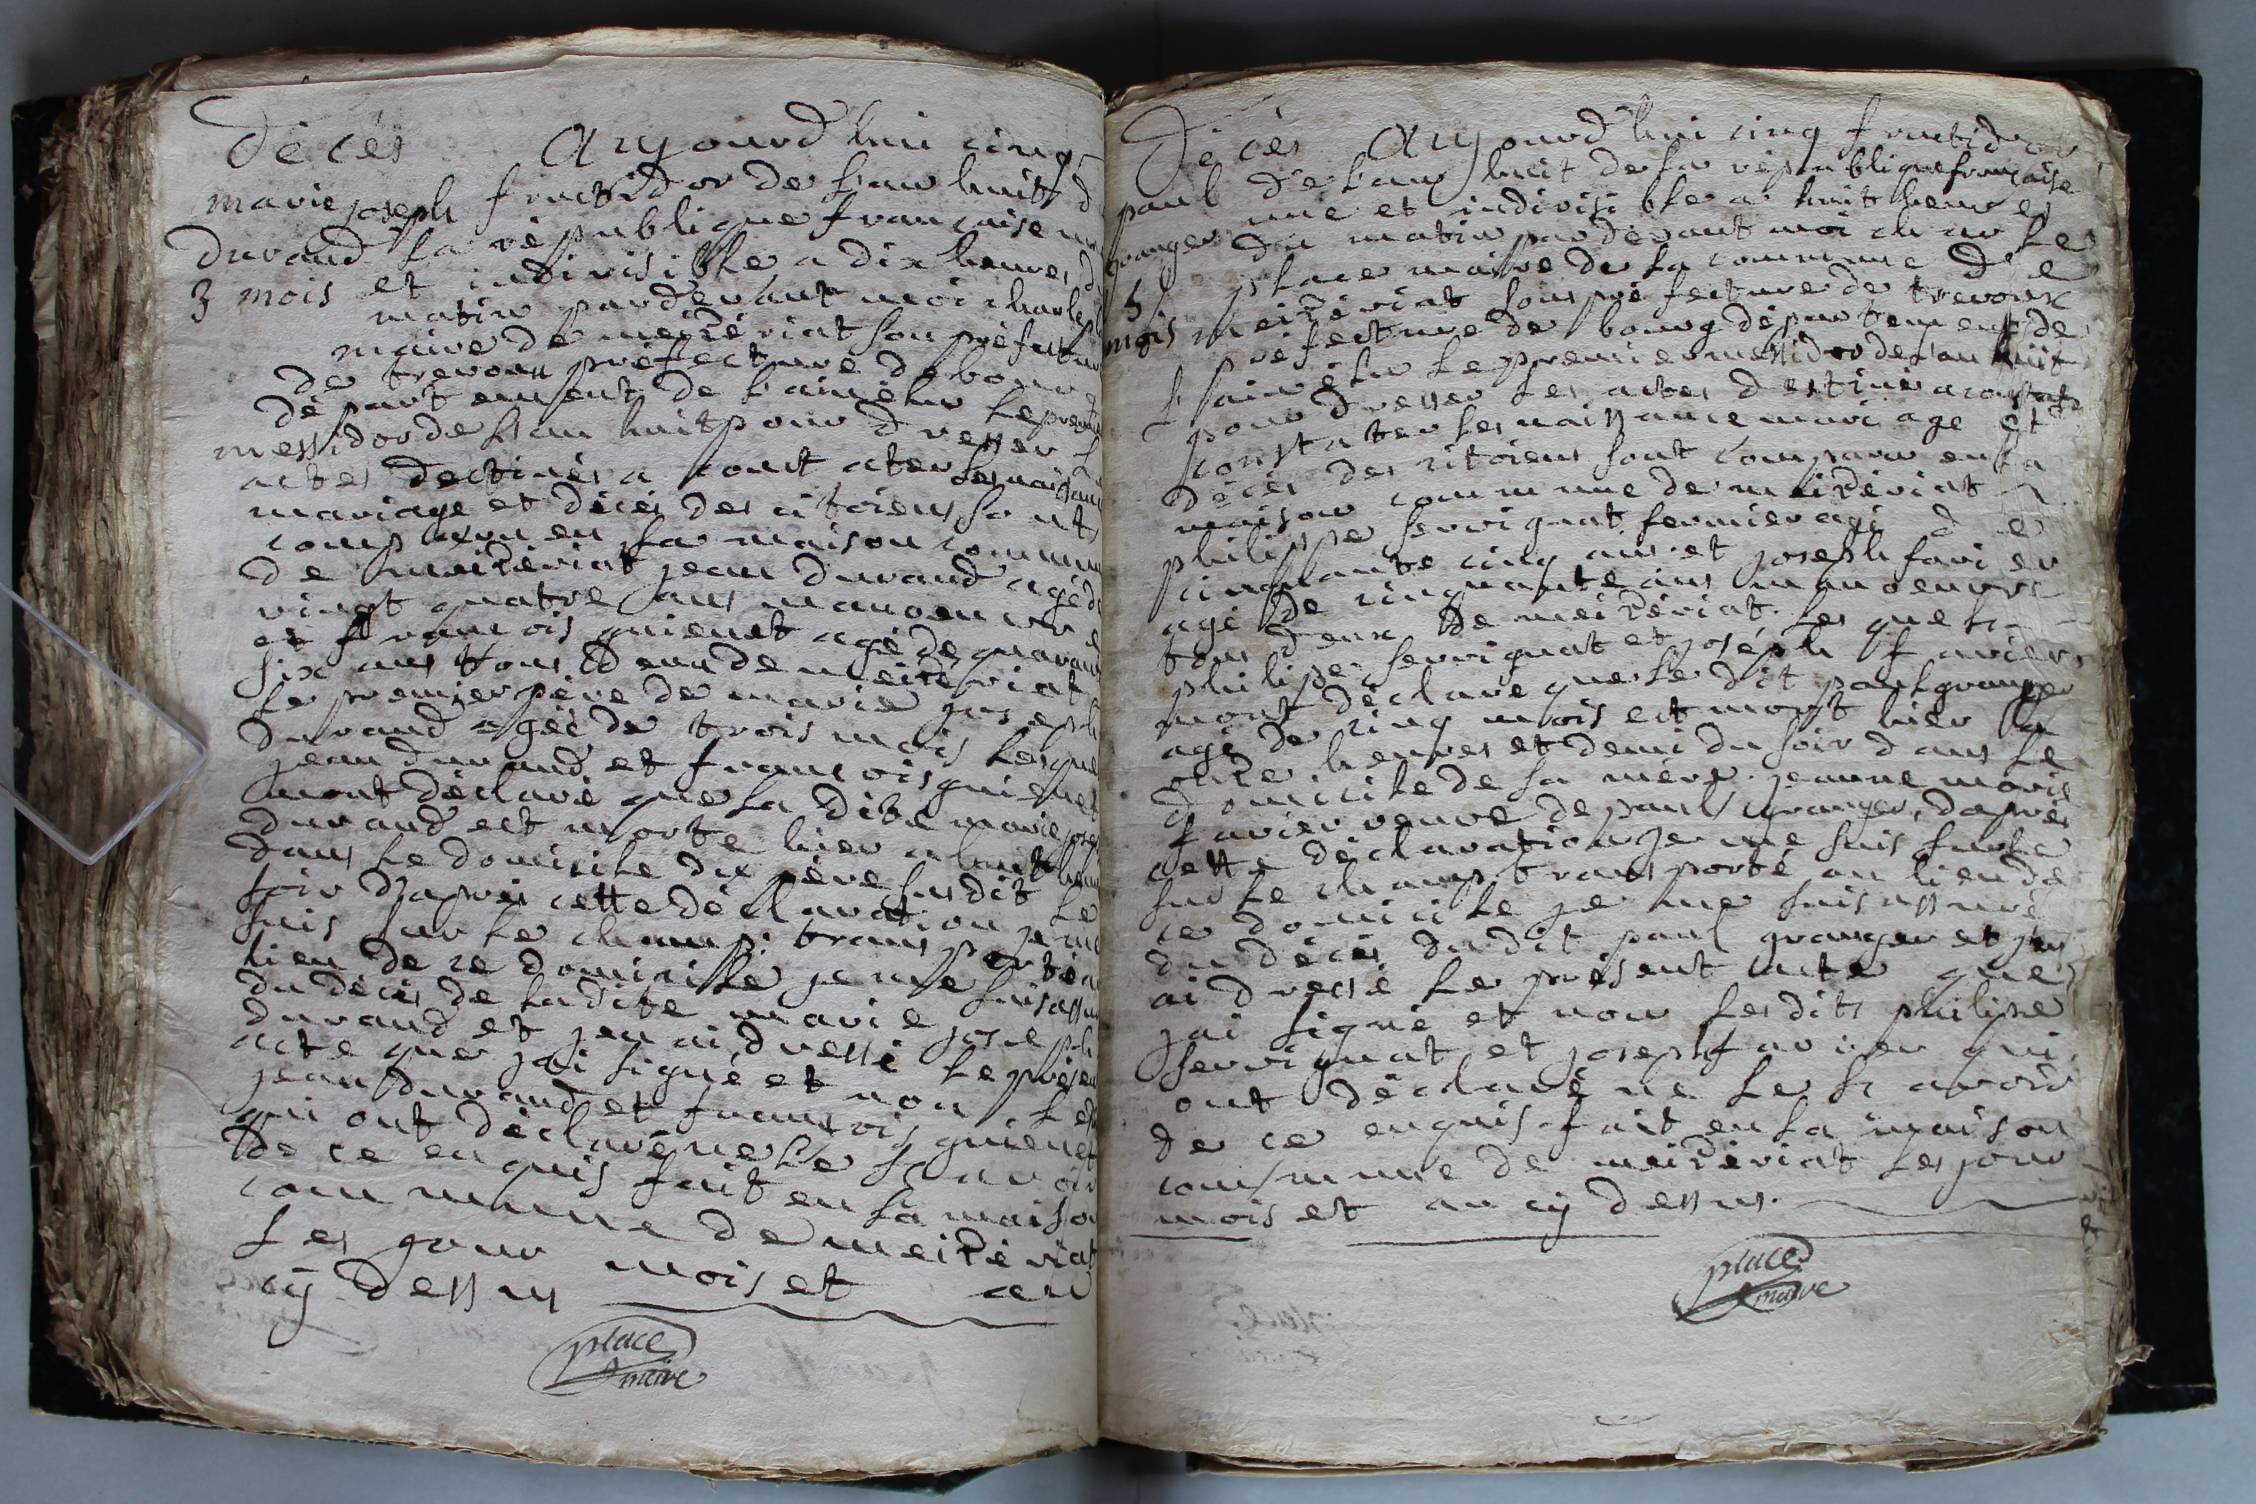 décès aujourd'hui cinq
marie joseph fructidor de l'an huit d
durand la république française un
3 mois et indivisible a dix heures d
matin pardevant moi charle
maire de meizériat sou préfectur
de trevoux préfecture de bour
département de l'ain élu le premi
messidor de l'an huit pour dresser l
actes destinés a constater les naissanc
mariage et décés des citoiens sont
comparu en la maison commun
de meizériat jean durand agé d
vingt quatre ans manoeuvre e
et françois guienet agé de quaran
six ans tous deux de meizériat
le premier père de marie joseph
durand agée de trois mois lesque
jean durand et françois guienet
mont déclaré que la dite marie jose
durand est morte hier a huit heu
dans le domicile du père susdit le
soir d'après cette déclaration je me
suis sur le champ transporté a
lieu de ce domicille je me suis assu
du décés de la dite marie joseph
durand et jen ai dressé le présen
acte que jai signé et non les
jean durand et françois guienet
qui ont déclaré ne le sçavoir
de ce enquis fait en la maison
commune de meizériat
les jour mois et an
cÿ dessus
place
maire
décès aujourd'hui cinq fructidor
paul de l'an huit de la république française
granger une et indivisible a huit heures
5 du matin pardevant moi charle
mois place maire de la commune de
meizériat sous préfecture de trevoux
préfecture de bourg département de
l'ain élu le premier messidor de l'an huit
pour dresser les actes destiné a constat
constater les naissance mariage et
décès des citoiens sont comparu en la
maison commune de meizériat
philippe servignat fermier agé de
cinquante cinq ans et joseph favier
agé de cinquante ans manoeuvre
tous deux de meizériat. les quels
philipe servignat et joséph favier
mont déclaré que le dit paul granger
agé de cinq mois est mort hier a
onze heures et demi du soir dans le
domicile de sa mère jeanne marie
favier veuve de paul granger, daprès
cette déclaration je me suis sur le
sur le champ transporté au lieu de
ce domicile je me suis assuré
du décés du dit paul granger et jen
ai dressé le présent acte que
jai signé et non les dits philipe
servignat et joseph favier qui
ont déclaré ne le sçavoir
de ce enquis. fait en la maison
commune de meizériat les jour
mois et an cÿ dessus.
place
maire